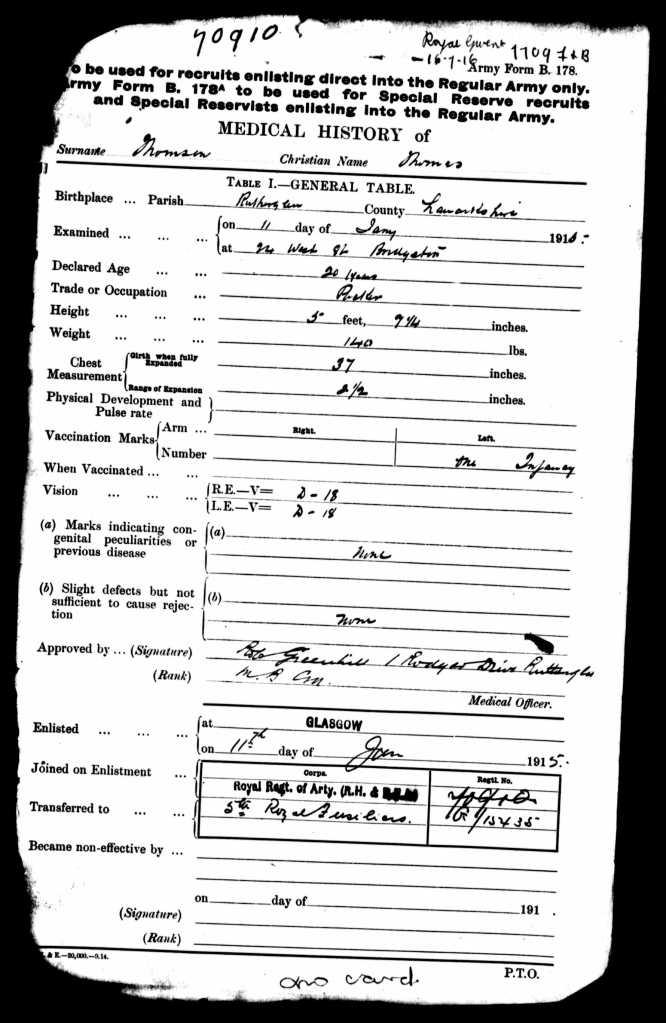 70910
Royal Gwent 1709 F&B
-16-7-16 Army Form B. 178.
o be used for recruits enlisting direct into the Regular Army only.
rmy Form B. 178A to be used for Special Reserve recruits
and Special Reservists enlisting into the Regular Army.
MEDICAL HISTORY of
Surname Thomson Christian Name Thomas
TABLE I.—GENERAL TABLE.
Birthplace ... Parish Rutherglen County Lanarkshire
Examined ... ... ... on 11 day of Jany 1915.
at 24 West St Bridgeton
Declared Age ... ... 20 years
Trade or Occupation ...
Height ... ... ... 5 feet, 9 1/4 inches.
Weight ... ... ... 140 lbs.
Chest Measurement Girth when fully Expanded 37 inches.
Range of Expansion 2 1/2 inches.
Physical Development and Pulse rate
Vaccination Marks Arm ... Right. Left.
Number one Infancy
When Vaccinated ... ...
Vision ... ... ... R.E.—V= D-18
L.E.—V= D-18
(a) Marks indicating con- (a)
genital peculiarities or
previous disease None
(b) Slight defects but not (b)
sufficient to cause rejec-
tion None
Approved by ... (Signature) Greenhill 1 Rodger Drive Rutherglen
(Rank) M.B. C.M.
Medical Officer.
Enlisted ... ... ... at GLASGOW
on 11th day of Jan 1915.
Corps. Regtl. No.
Joined on Enlistment ... Royal Regt. of Arty. (R.H. & R.F.A.) 70910
Transferred to ... ... 5th Royal Fusiliers. G/15435
Became non-effective by ...
on day of 191 .
(Signature)
(Rank)
& E.—20,000.—9.14.
P.T.O.
card.